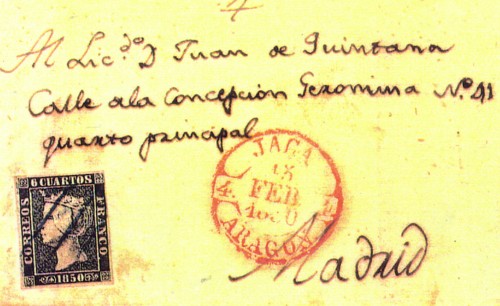 4
Al Lic.do D Juan de Quintana
Calle de la Concepción Geronima N.o 41
quarto principal
JACA
FEB
1850
4
ARAGON
Madrid
6 CUARTOS
CORREOS
FRANCO
1850